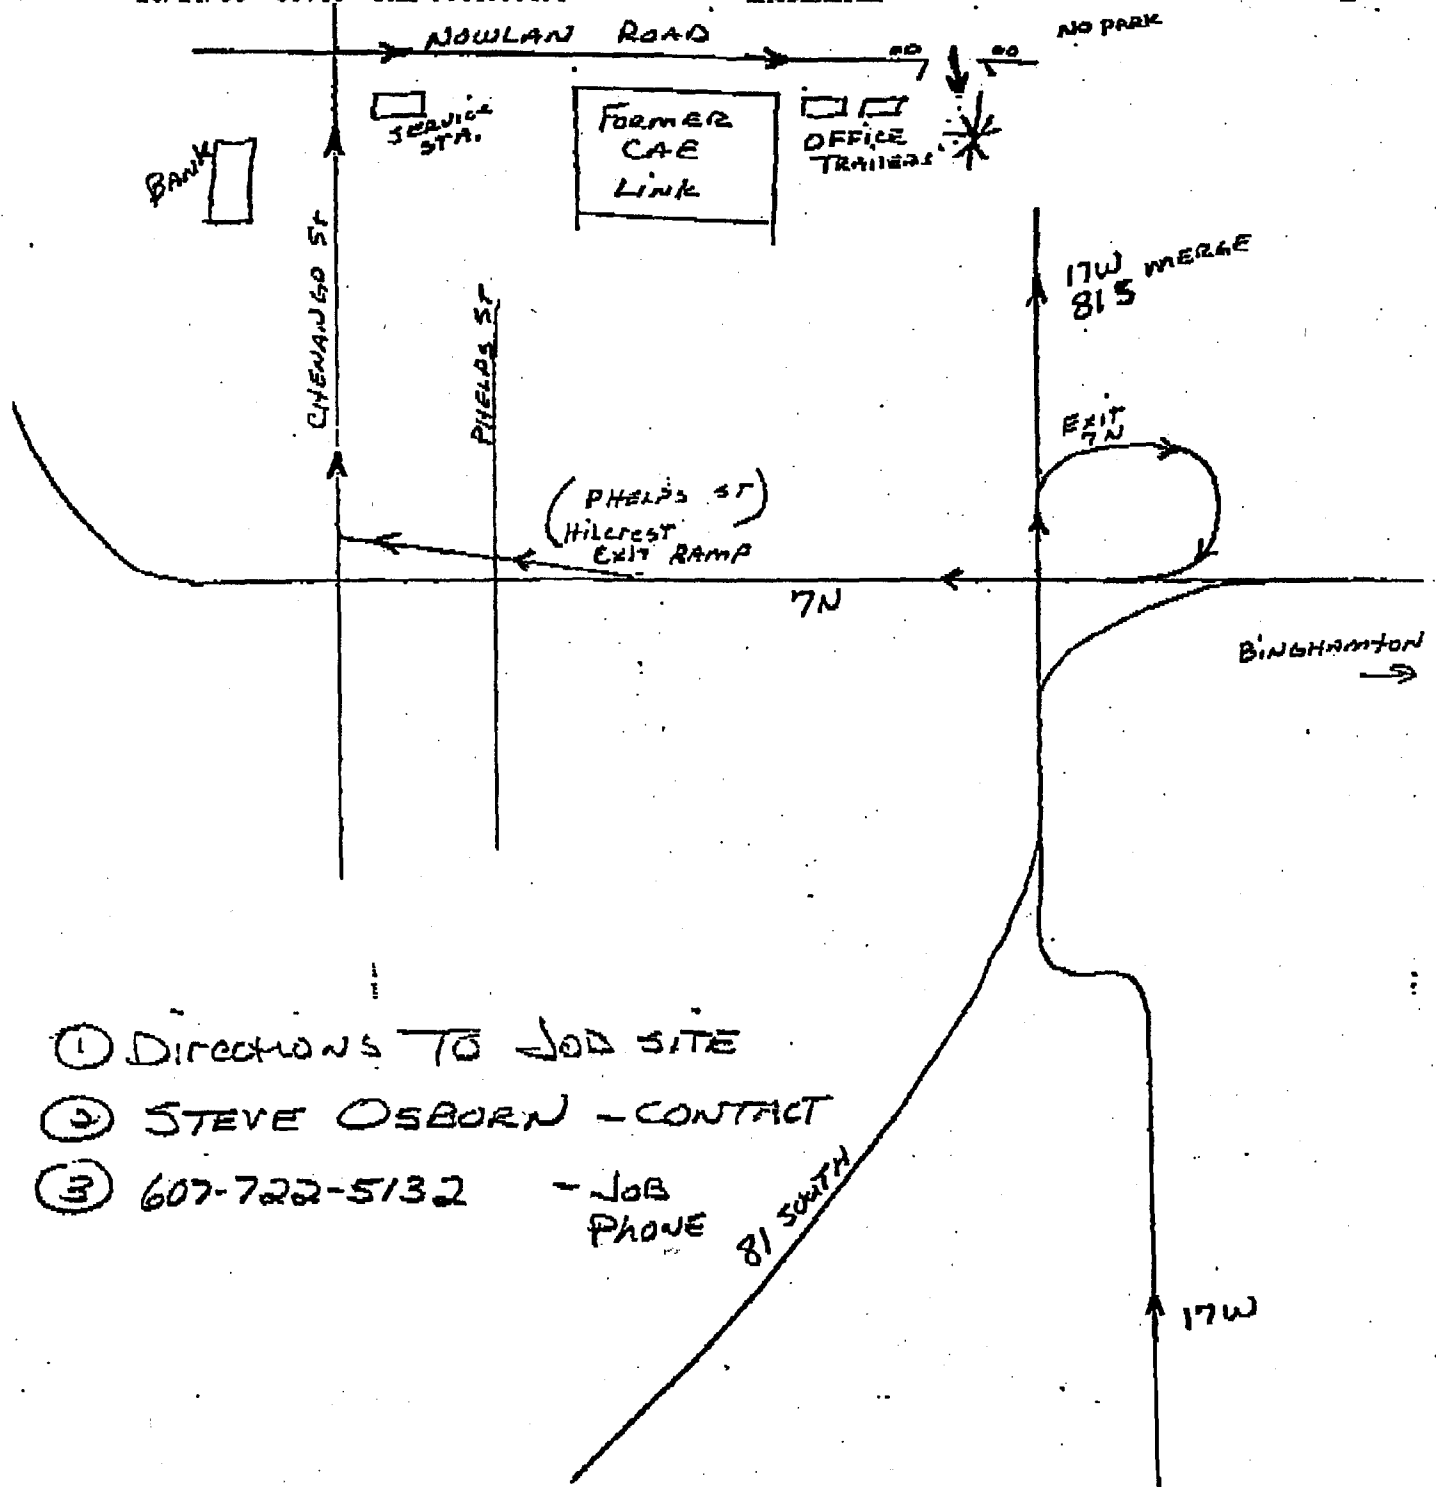 NOWLAN ROAD
NO PARK
SERVICE
STA.
FORMER
CAE
LINK
OFFICE
TRAILERS
BANK
CHENANGO ST
PHELPS ST
17W MERGE
81 S
EXIT
7N
(PHELPS ST)
Hillcrest
EXIT RAMP
7N
BINGHAMTON
① Directions TO JOB SITE
② STEVE OSBORN - CONTACT
③ 607-722-5132 - JOB
PHONE
81 SOUTH
17W